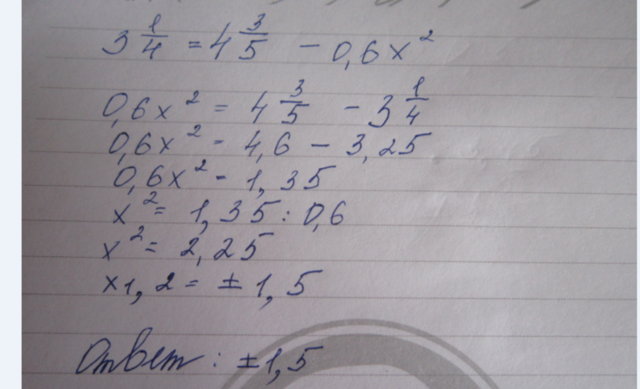 3 1/4 = 4 3/5 - 0,6x²
0,6x² = 4 3/5 - 3 1/4
0,6x² = 4,6 - 3,25
0,6x² = 1,35
x² = 1,35 : 0,6
x² = 2,25
x1,2 = ± 1,5
Ответ: ±1,5